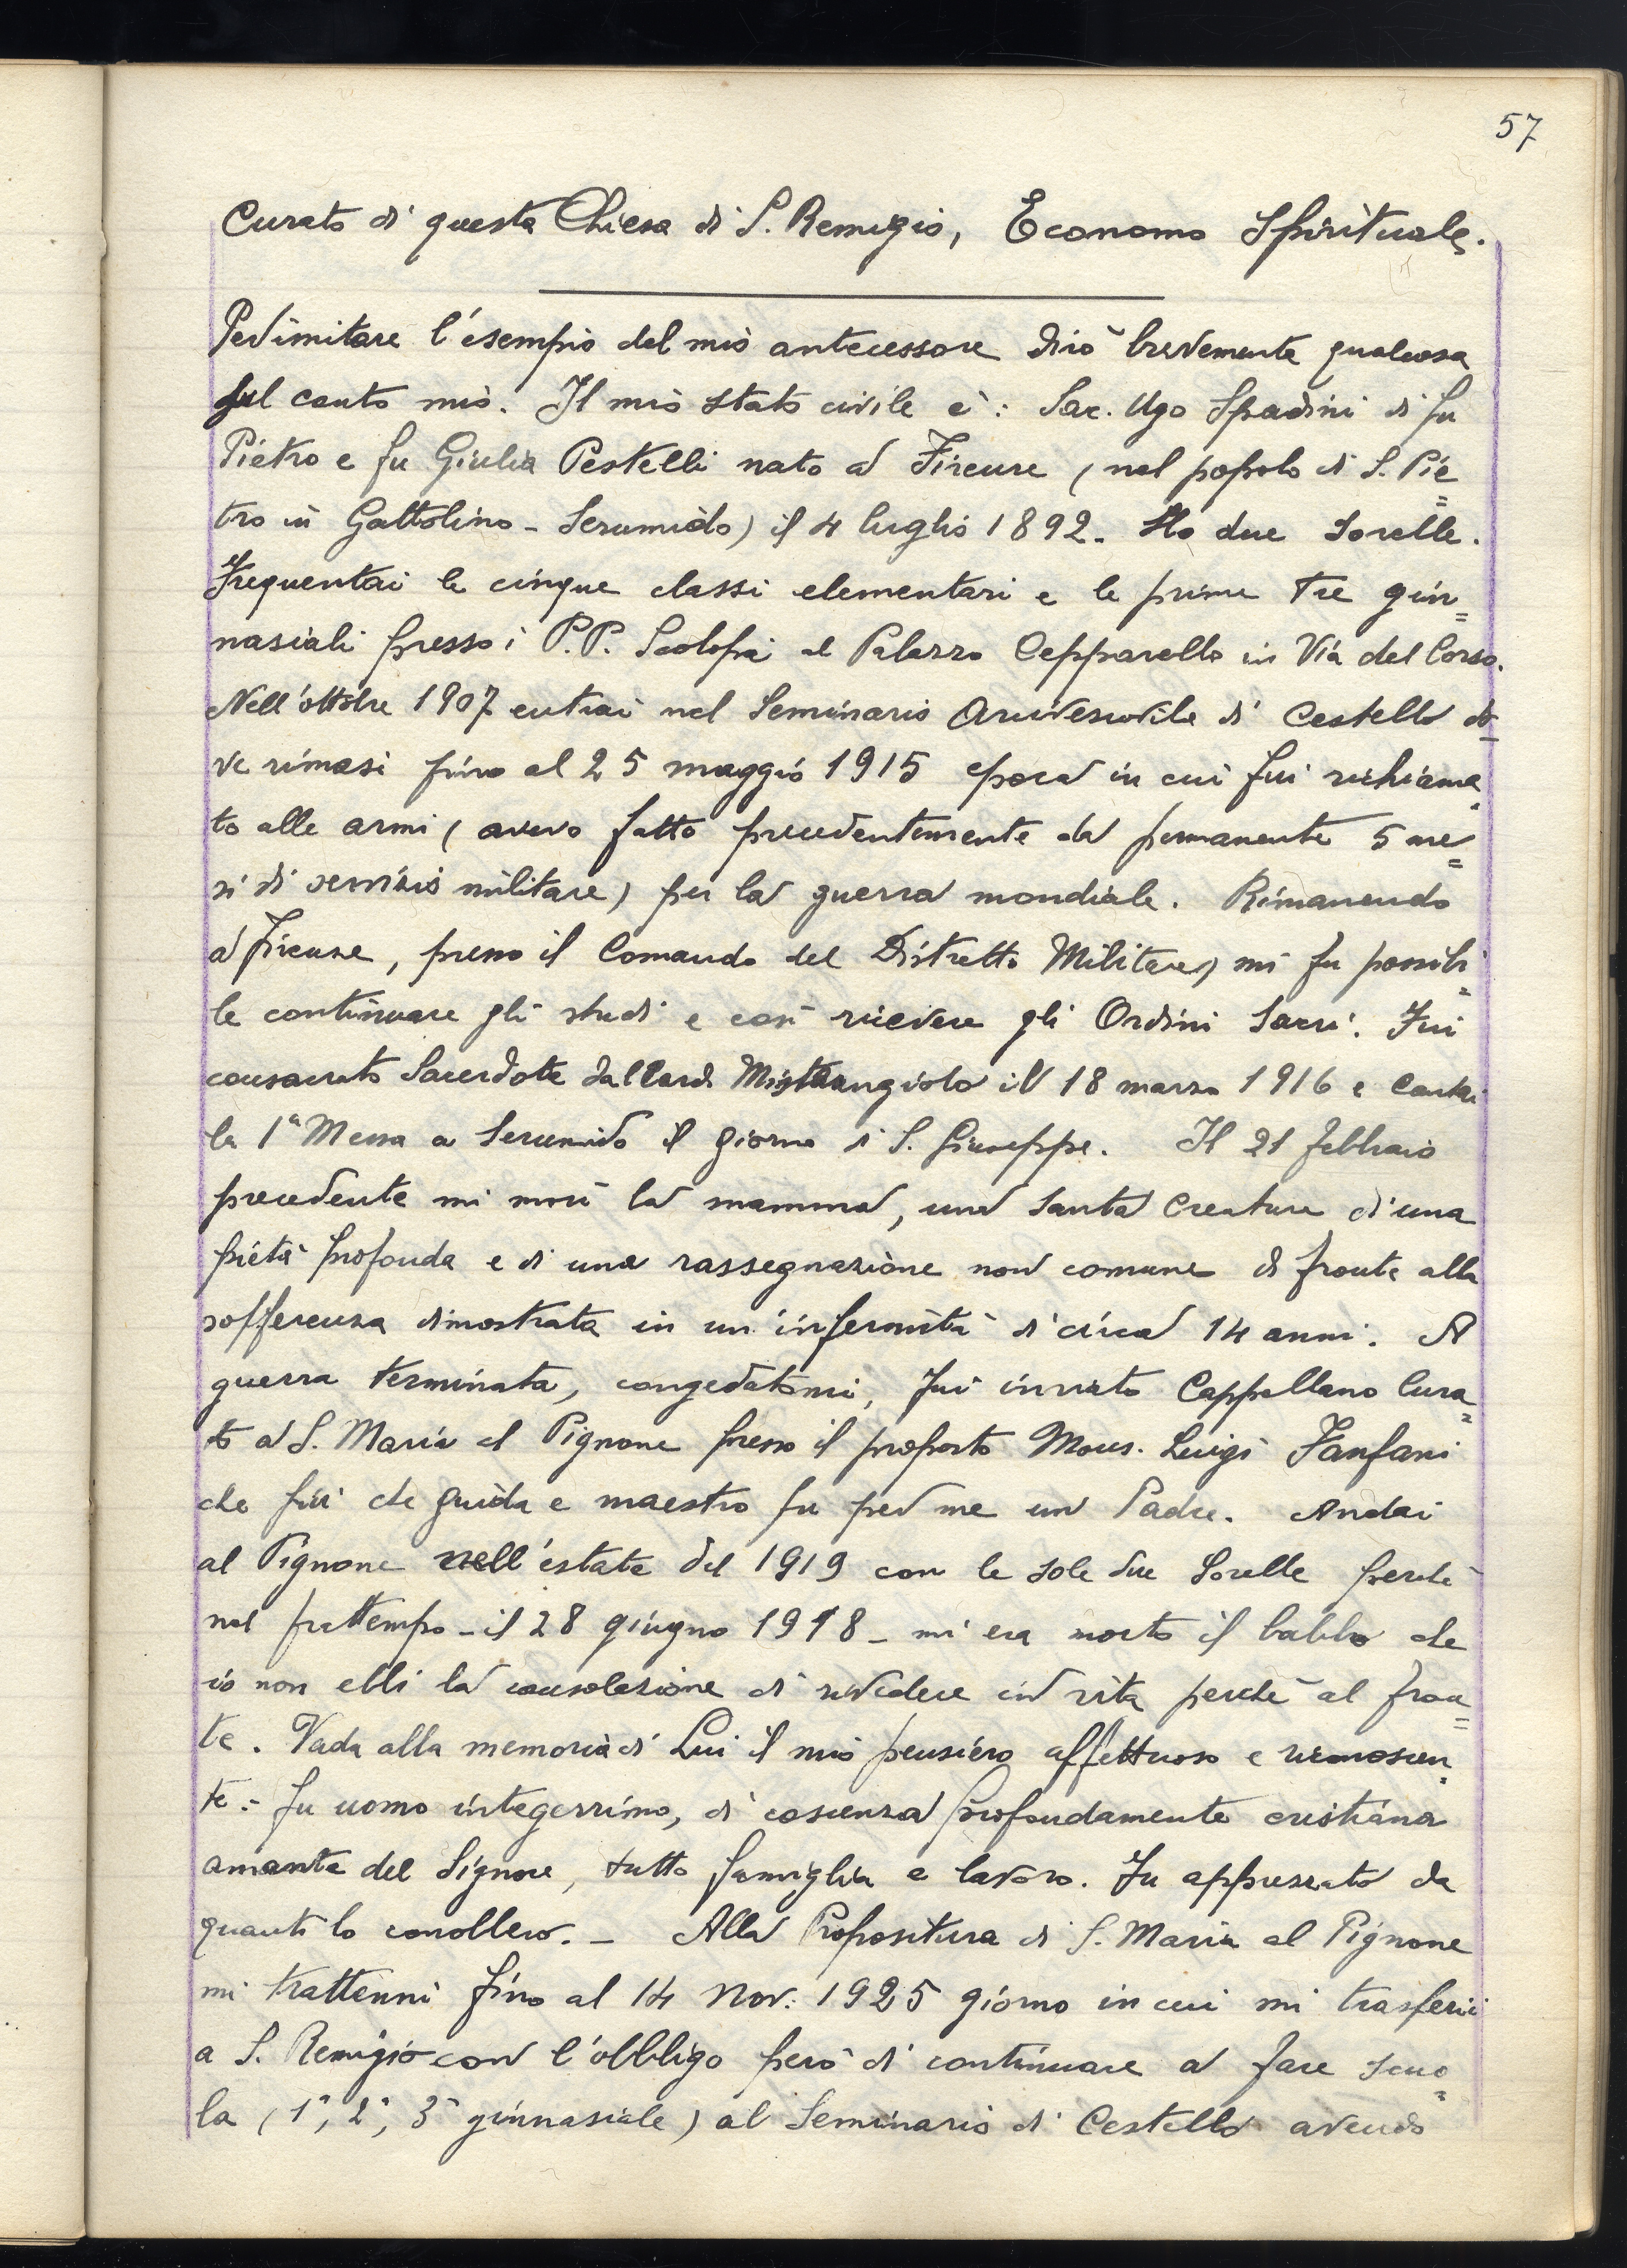 57
Curato di questa Chiesa di S. Remigio, Economo Spirituale.
Per imitare l'esempio del mio antecessore dirò brevemente qualcosa
sul conto mio. Il mio stato civile è: Sac. Ugo Spadini di fu
Pietro e fu Giulia Pestelli nato a Firenze (nel popolo di S. Pie=
tro in Gattolino - Serumido) il 4 luglio 1892. Ho due sorelle.
Frequentai le cinque classi elementari e le prime tre gin=
nasiali presso i P.P. Scolopi al Palazzo Cepparello in Via del Corso.
Nell'ottobre 1907 entrai nel Seminario Arcivescovile di Cestello do=
ve rimasi fino al 25 maggio 1915 epoca in cui fui richiama=
to alle armi (avevo fatto precedentemente da permanente 5 me=
si di servizio militare) per la guerra mondiale. Rimanendo
a Firenze, presso il Comando del Distretto Militare, mi fu possibi=
le continuare gli studi e così ricevere gli Ordini Sacri. Fui
consacrato Sacerdote dal Card. Mistrangiolo il 18 marzo 1916 e cantai
la 1ª Messa a Serumido il giorno di S. Giuseppe. Il 21 febbraio
precedente mi morì la mamma, una santa creatura di una
pietà profonda e di una rassegnazione non comune di fronte alla
sofferenza dimostrata in un'infermità di circa 14 anni. A
guerra terminata, congedatomi, fui inviato Cappellano Cura=
to a S. Maria al Pignone presso il proposto Mons. Luigi Fanfani
che più che guida e maestro fu per me un Padre. Andai
al Pignone nell'estate del 1919 con le sole due sorelle perché
nel frattempo - il 28 giugno 1918 - mi era morto il babbo che
io non ebbi la consolazione di rivedere in vita perché al fron=
te. Vada alla memoria di Lui il mio pensiero affettuoso e riconoscen=
te: fu uomo integerrimo, di coscienza profondamente cristiana
amante del Signore, tutto famiglia e lavoro. Fu apprezzato da
quanti lo conobbero. - Alla Propositura di S. Maria al Pignone
mi trattenni fino al 14 Nov: 1925 giorno in cui mi trasferii
a S. Remigio con l'obbligo però di continuare a fare scuo=
la (1ª, 2ª, 3ª ginnasiale) al Seminario di Cestello avendo